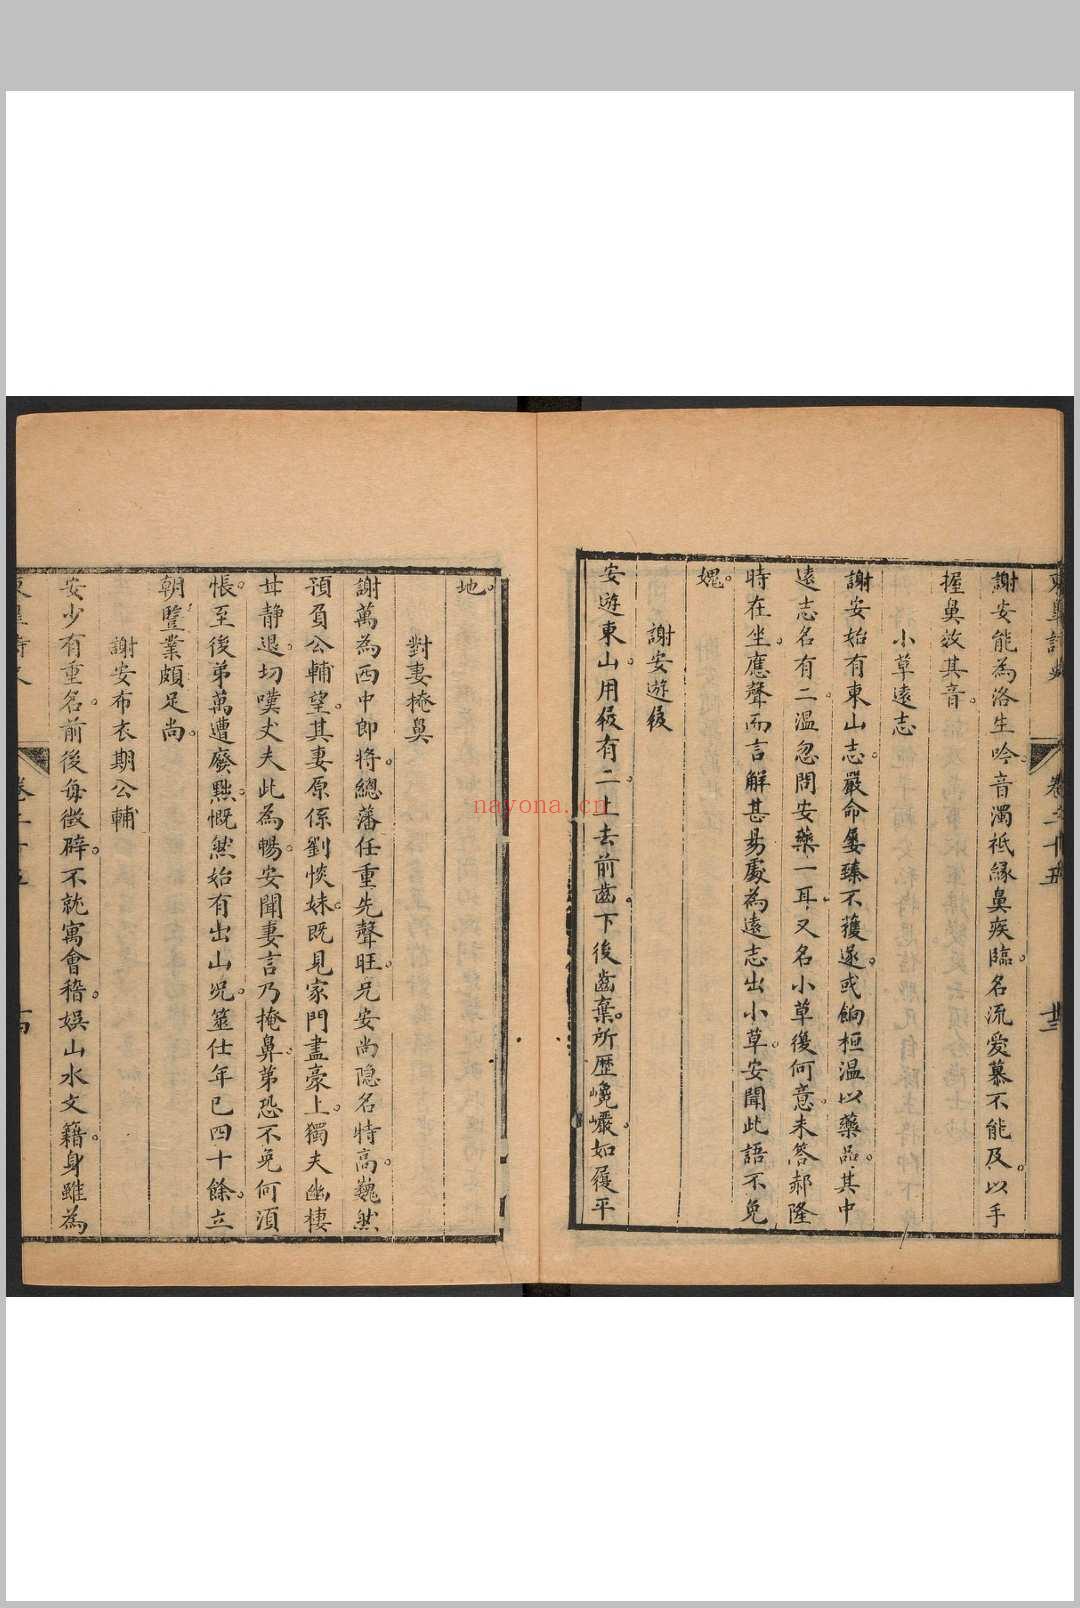 謝安能為洛生吟。音濁。祗緣鼻疾。臨名流。愛慕不能及。以手
握鼻效其音。
小草遠志
謝安始有東山志。嚴命屢臻。不獲遂。或餉桓溫以藥品。其中
遠志名有二。溫忽問安。藥一耳。又名小草復何意。未答。郝隆
時在坐。應聲而言解甚易。處為遠志出小草。安聞此語不免
媿。
謝安遊屐
安遊東山。用屐有二。上去前齒。下後齒棄。所歷巉巖。如履平
地。
對妻掩鼻
謝萬為西中郎將。總藩任重先聲旺。兄安尚隐名特高。巍然
預負公輔望。其妻原係劉惔妹。既見家門盡豪上。獨夫幽棲
甘靜退。切嘆丈夫此為暢。安聞妻言乃掩鼻。第恐不免何須
悵。至後弟萬遭廢黜。慨然始有出山况。筮仕年已四十餘。立
朝豎業頗足尚。
謝安布衣期公輔
安少有重名。前後每徵辟。不就寓會稽。娛山水文籍。身雖為
卷二十五
nayona.cn